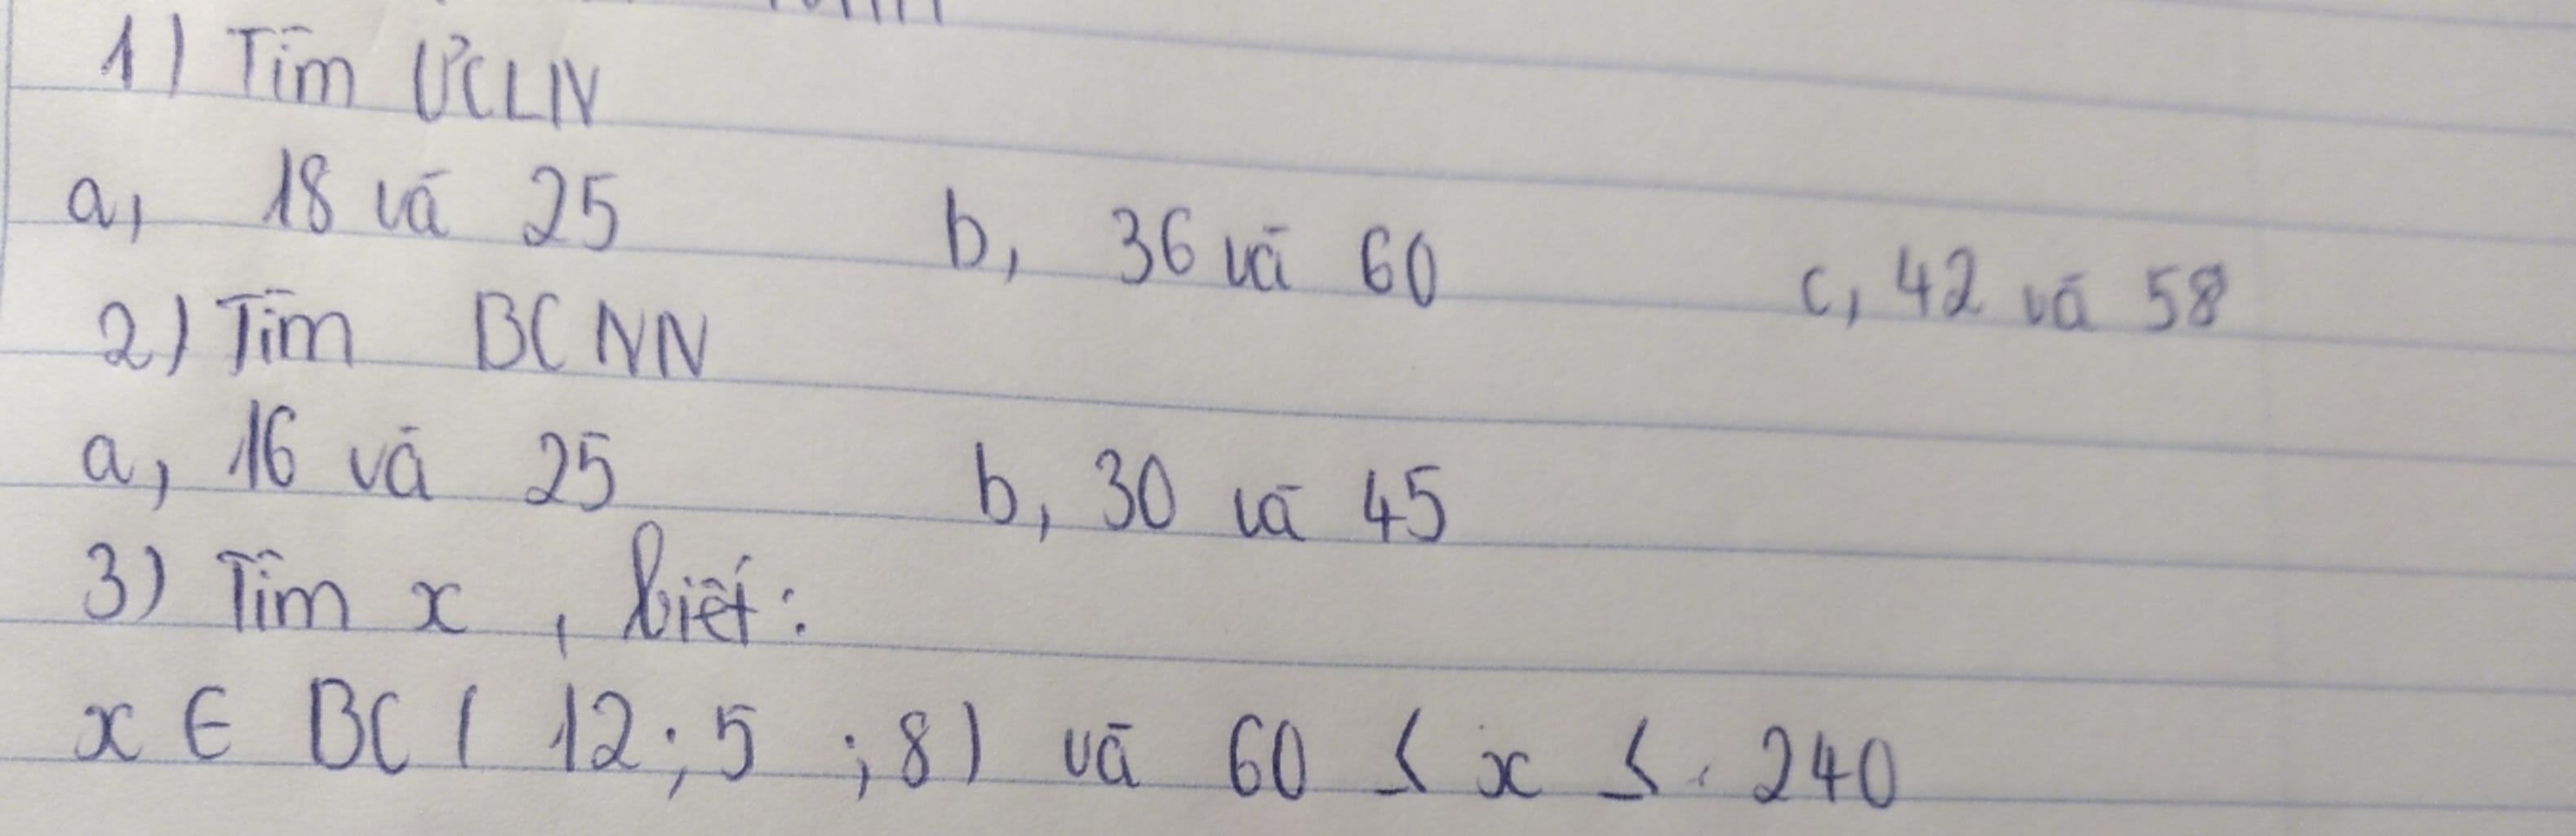 1) Tìm ƯCLN
a, 18 và 25 b, 36 và 60 c, 42 và 58
2) Tìm BCNN
a, 16 và 25 b, 30 và 45
3) Tìm x, biết:
x ∈ BC ( 12; 5 ; 8) và 60 ≤ x ≤ 240